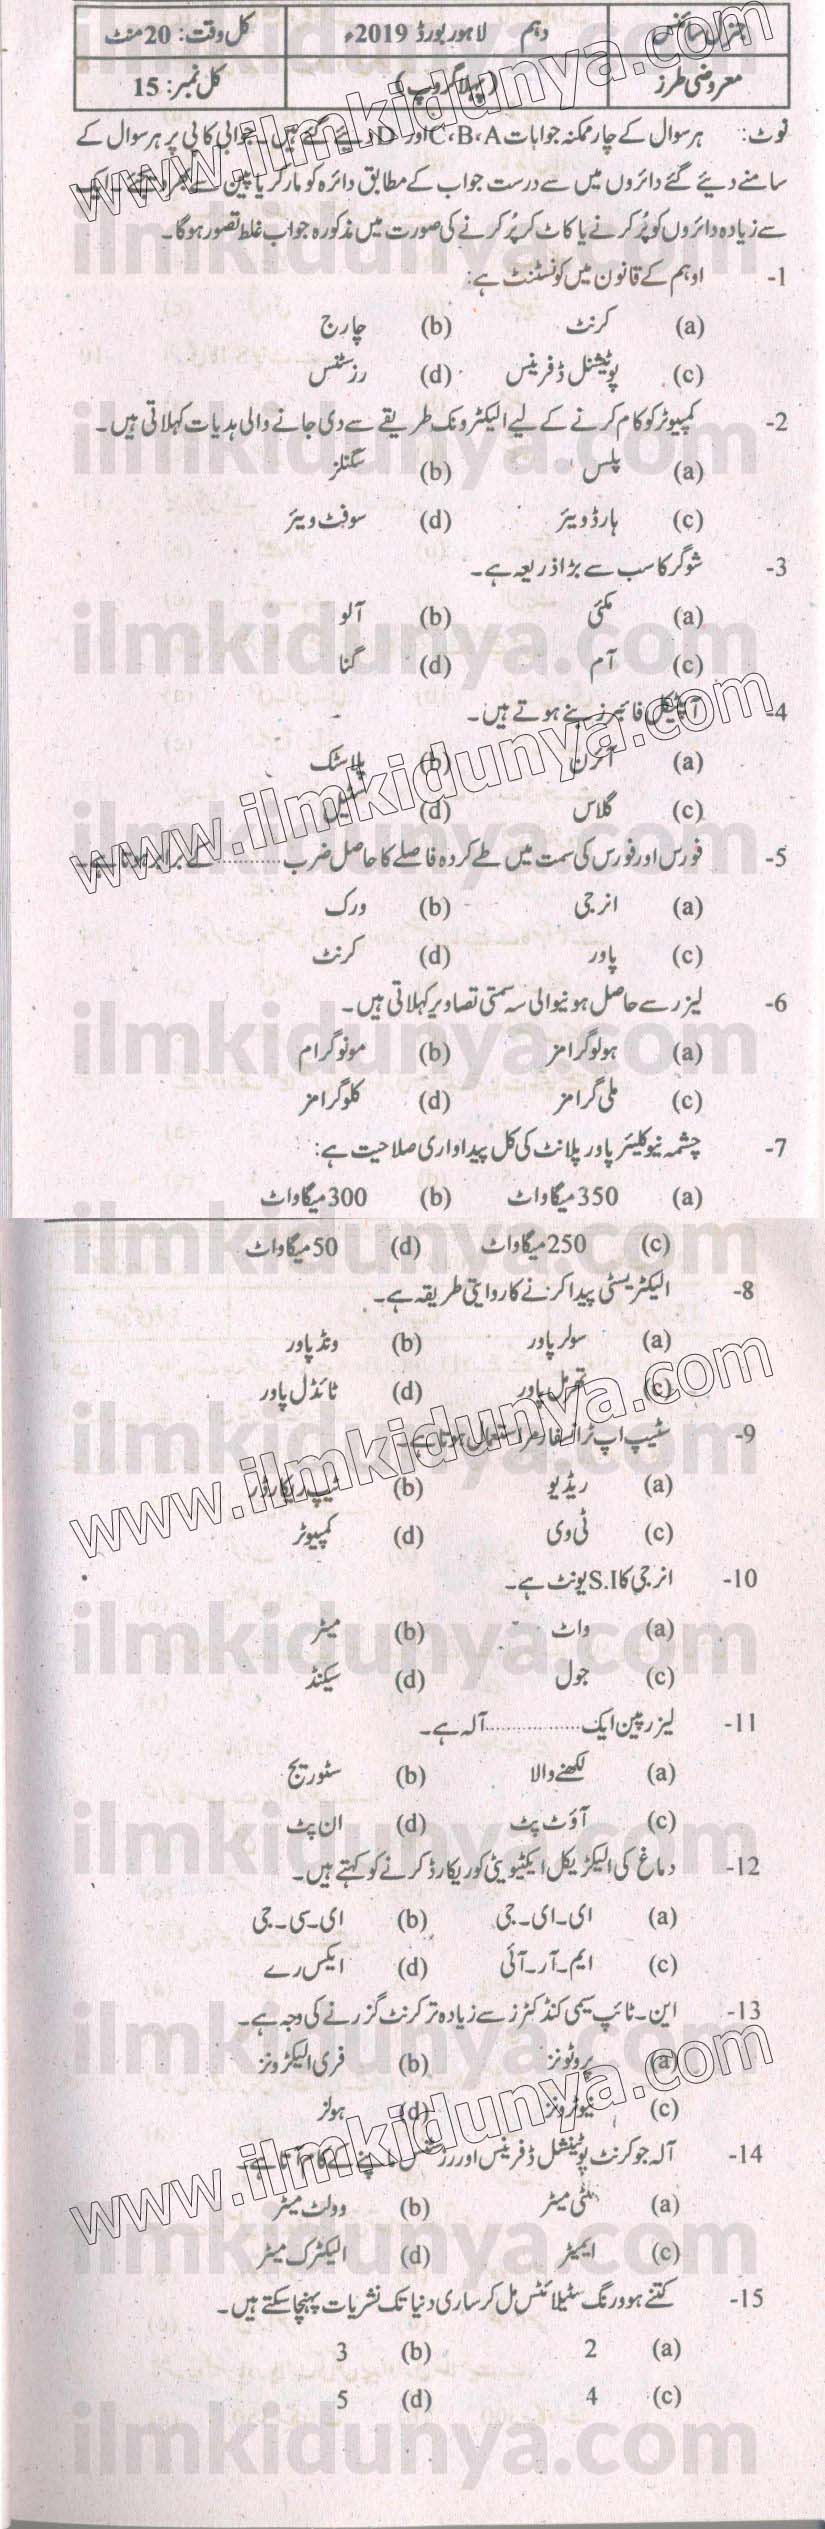 جنرل سائنس دہم لاہور بورڈ 2019ء کل وقت: 20 منٹ
معروضی طرز (پہلا گروپ) کل نمبر: 15
نوٹ: ہر سوال کے چار ممکنہ جوابات C،B،A اور D دیئے گئے ہیں۔ جوابی کاپی پر ہر سوال کے
سامنے دیئے گئے دائروں میں سے درست جواب کے مطابق دائرہ کو مارکر یا پین سے بھر دیجئے۔ ایک
سے زیادہ دائروں کو پُر کرنے یا کاٹ کر پُر کرنے کی صورت میں مذکورہ جواب غلط تصور ہوگا۔
1- اوہم کے قانون میں کونسٹنٹ ہے:
(a) کرنٹ (b) چارج
(c) پوٹینشل ڈفرینس (d) رزسٹنس
2- کمپیوٹر کو کام کرنے کے لیے الیکٹرونک طریقے سے دی جانے والی ہدیات کہلاتی ہیں۔
(a) پلس (b) سگنلز
(c) ہارڈ ویئر (d) سوفٹ ویئر
3- شوگر کا سب سے بڑا ذریعہ ہے۔
(a) مکئی (b) آلو
(c) آم (d) گنا
4- آپٹیکل فائبرز بنے ہوتے ہیں۔
(a) آئرن (b) پلاسٹک
(c) گلاس (d) سٹیل
5- فورس اور فورس کی سمت میں طے کردہ فاصلے کا حاصل ضرب ............ کے برابر ہوتا ہے۔
(a) انرجی (b) ورک
(c) پاور (d) کرنٹ
6- لیزر سے حاصل ہونیوالی سہ سمتی تصاویر کہلاتی ہیں۔
(a) ہولوگرامز (b) مونوگرام
(c) ملی گرامز (d) کلوگرامز
7- چشمہ نیوکلیئر پاور پلانٹ کی کل پیداواری صلاحیت ہے:
(a) 350 میگاواٹ (b) 300 میگاواٹ
(c) 250 میگاواٹ (d) 50 میگاواٹ
8- الیکٹریسٹی پیدا کرنے کا روایتی طریقہ ہے۔
(a) سولر پاور (b) ونڈ پاور
(c) تھرمل پاور (d) ٹائڈل پاور
9- سٹیپ اپ ٹرانسفارمر استعمال ہوتا ہے۔
(a) ریڈیو (b) ٹیپ ریکارڈر
(c) ٹی وی (d) کمپیوٹر
10- انرجی کا S.I یونٹ ہے۔
(a) واٹ (b) میٹر
(c) جول (d) سیکنڈ
11- لیزر پین ایک .................. آلہ ہے۔
(a) لکھنے والا (b) سٹوریج
(c) آؤٹ پٹ (d) ان پٹ
12- دماغ کی الیکٹریکل ایکٹیویٹی کو ریکارڈ کرنے کو کہتے ہیں۔
(a) ای۔ای۔جی (b) ای۔سی۔جی
(c) ایم۔آر۔آئی (d) ایکس رے
13- این۔ٹائپ سیمی کنڈکٹرز سے زیادہ تر کرنٹ گزرنے کی وجہ ہے۔
(a) پروٹونز (b) فری الیکٹرونز
(c) نیوٹرونز (d) ہولز
14- آلہ جو کرنٹ پوٹینشل ڈفرینس اور رزسٹنس ماپنے کے کام آتا ہے۔
(a) ملٹی میٹر (b) وولٹ میٹر
(c) ایمیٹر (d) الیکٹرک میٹر
15- کتنے ہوورنگ سٹیلائٹس مل کر ساری دنیا تک نشریات پہنچا سکتے ہیں۔
(a) 2 (b) 3
(c) 4 (d) 5
ilmkidunya.com
www.ilmkidunya.com